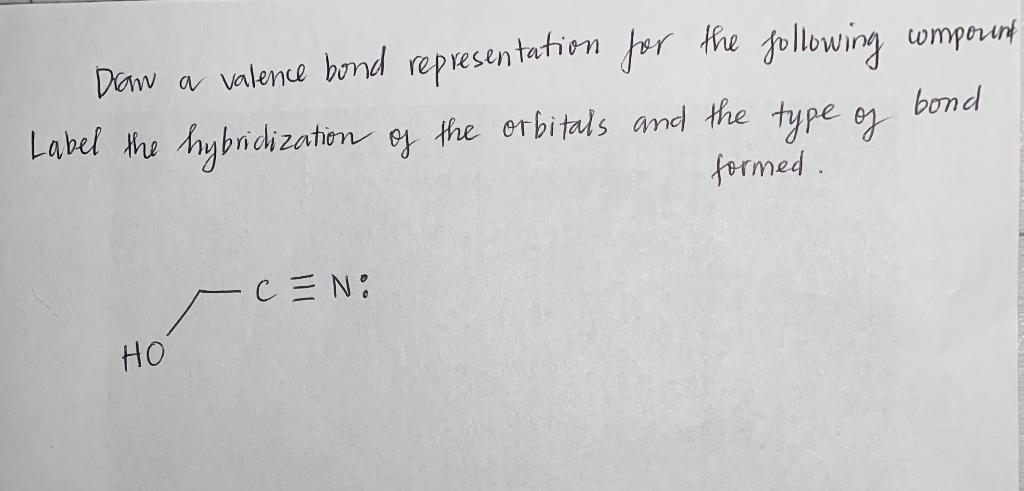 Draw a valence bond representation for the following compound
Label the hybridization of the orbitals and the type of bond
formed.
C ≡ N:
HO